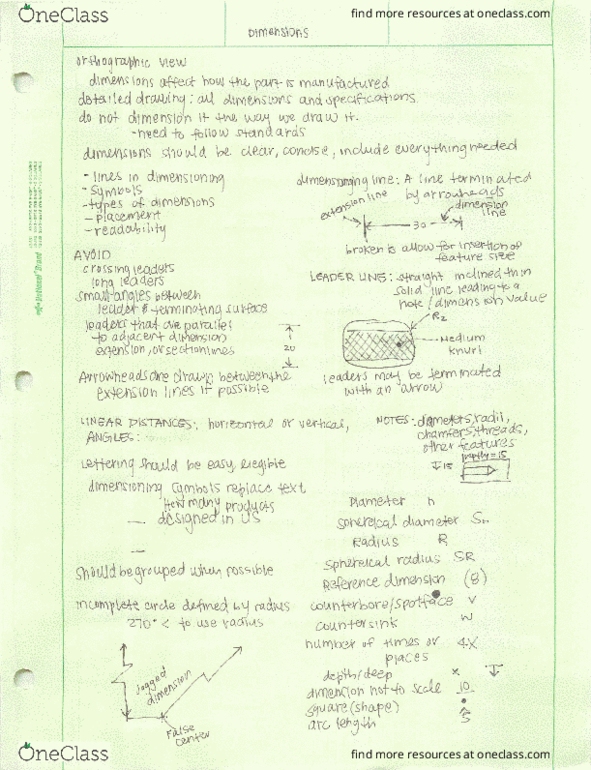 OneClass
find more resources at oneclass.com
Dimensions
orthographic view
dimensions affect how the part is manufactured
detailed drawing: all dimensions and specifications.
do not dimension it the way we draw it.
-need to follow standards
dimensions should be clear, concise, include everything needed
- lines in dimensioning
- symbols
- types of dimensions
- placement
- readability
dimensioning line: A line terminated
by arrowheads
extension line
dimension
line
30
broken to allow for insertion of
feature size
AVOID
crossing leaders
long leaders
small angles between
leader & terminating surface
leaders that are parallel
to adjacent dimension
extension, or section lines
20
Arrowheads are drawn between the
extension lines if possible
LEADER LINE: straight inclined thin
solid line leading to a
note/dimension value
R2
Medium
knurl
leaders may be terminated
with an arrow
LINEAR DISTANCES: horizontal or vertical,
ANGLES:
NOTES: diameters, radii,
chamfers, threads,
other features
15
Lettering should be easy, legible
dimensioning symbols replace text
How many products
designed in US
should be grouped when possible
incomplete circle defined by radius
270° < to use radius
Jogged
dimension
False
center
Diameter n
Sphereical diameter Sn
Radius R
Sphereical radius SR
Reference dimension (8)
counterbore/spotface v
countersink w
number of times or 4X
places
depth/deep x
dimension not to scale 10
square (shape)
arc length 5
OneClass
find more resources at oneclass.com